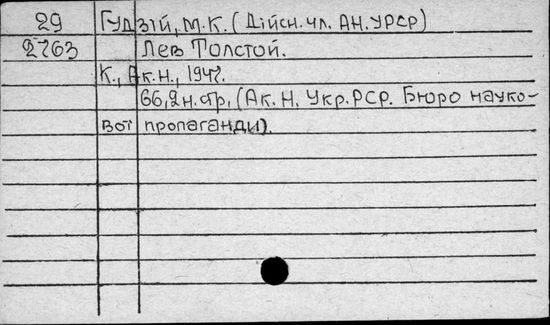 29 Гудзій, М.К. (Дійсн.чл. АН.УРСР)
2763 Лев Толстой.
К., Ак.н., 1947.
66,2н.стр, (Ак.Н. Укр.РСР. Бюро науко-
вот пропаганди).